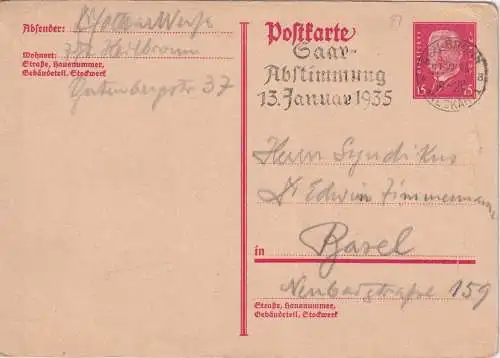 Absender:
Wohnort: Heilbronn
Straße, Hausnummer,
Gebäudeteil, Stockwerk
Gutenbergstr 37
Postkarte
Saar-
Abstimmung
13. Januar 1935
15 15
Herrn Syndikus
Dr Edwin Zimmermann
in Basel
Neubadstraße 159
Straße, Hausnummer,
Gebäudeteil, Stockwerk